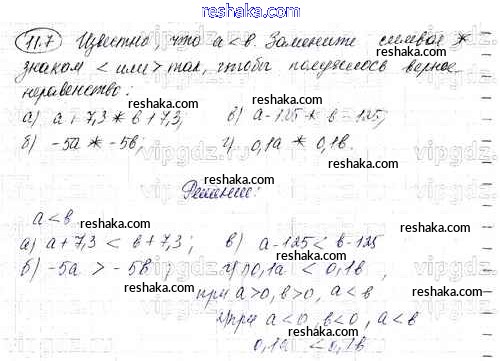 reshaka.com
11.7 Известно что a < в. Замените символ *
знаком < или > так, чтобы получилось верное
неравенство:
reshaka.com
а) a + 7,3 * в + 7,3; в) a - 125 * в - 125;
reshaka.com
б) -5a * -5в; г) 0,1a * 0,1в.
reshaka.com
Решение:
reshaka.com
a < в
reshaka.com
а) a + 7,3 < в + 7,3; в) a - 125 < в - 125
reshaka.com
б) -5a > -5в; г) 1) 0,1a < 0,1в,
reshaka.com
при a > 0, в > 0, a < в
2) при a < 0 в < 0, a < в
reshaka.com
0,1a < 0,1в
reshaka.com